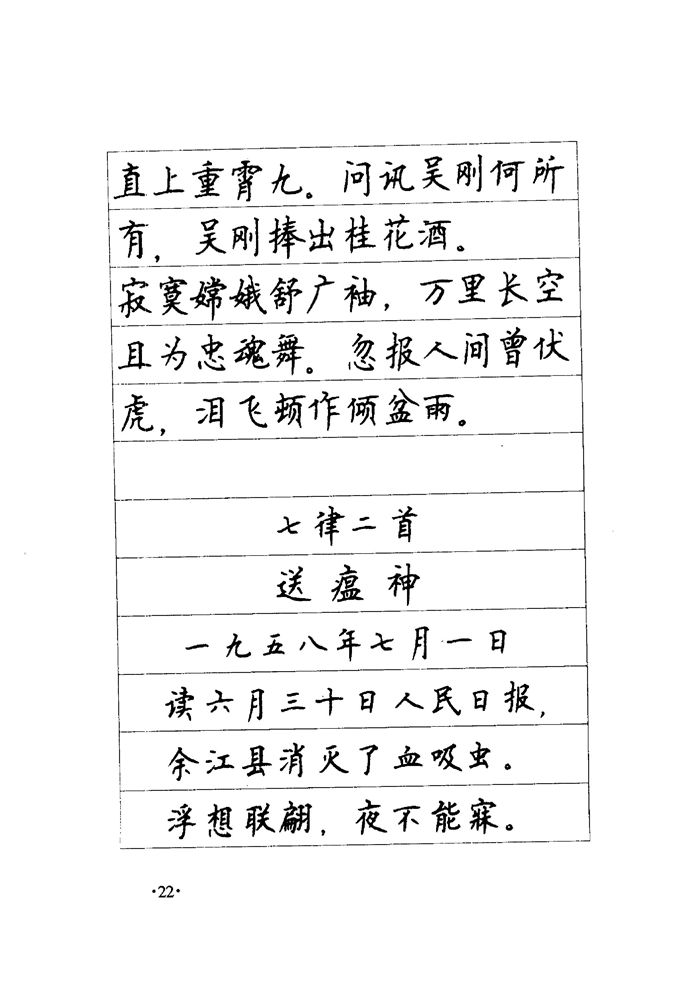 直上重霄九。问讯吴刚何所
有，吴刚捧出桂花酒。
寂寞嫦娥舒广袖，万里长空
且为忠魂舞。忽报人间曾伏
虎，泪飞顿作倾盆雨。
七律二首
送瘟神
一九五八年七月一日
读六月三十日人民日报，
余江县消灭了血吸虫。
浮想联翩，夜不能寐。
·22·